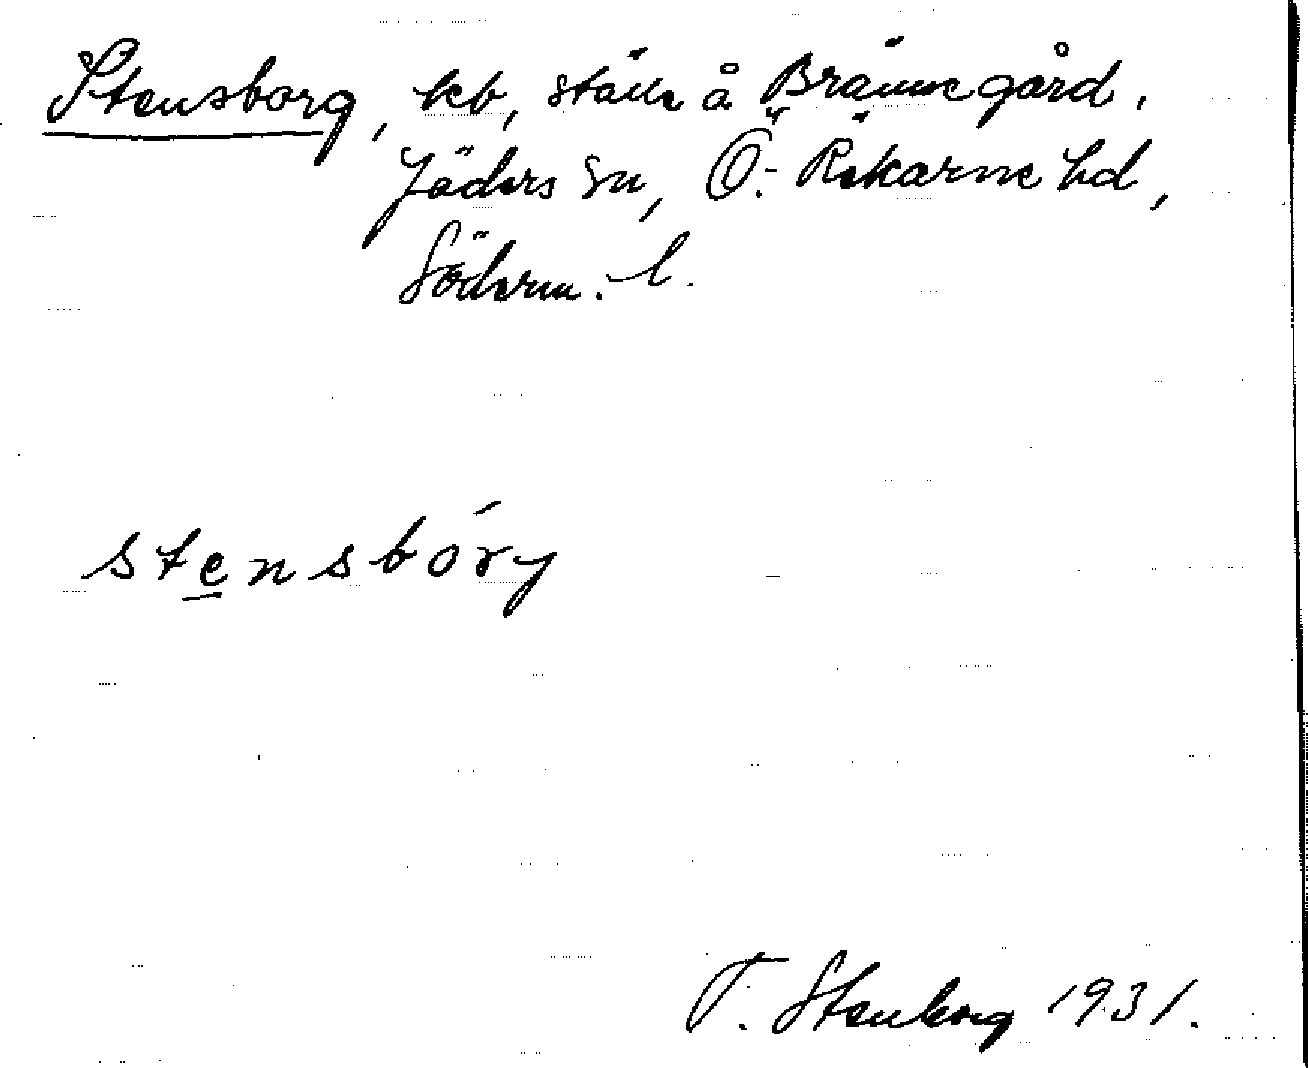 Stensborg, kb, ställe å Brännegård,
Jäders sn, Ö. Rekarne hd,
Söderm. l.
stensbory
T. Stenborg 1931.